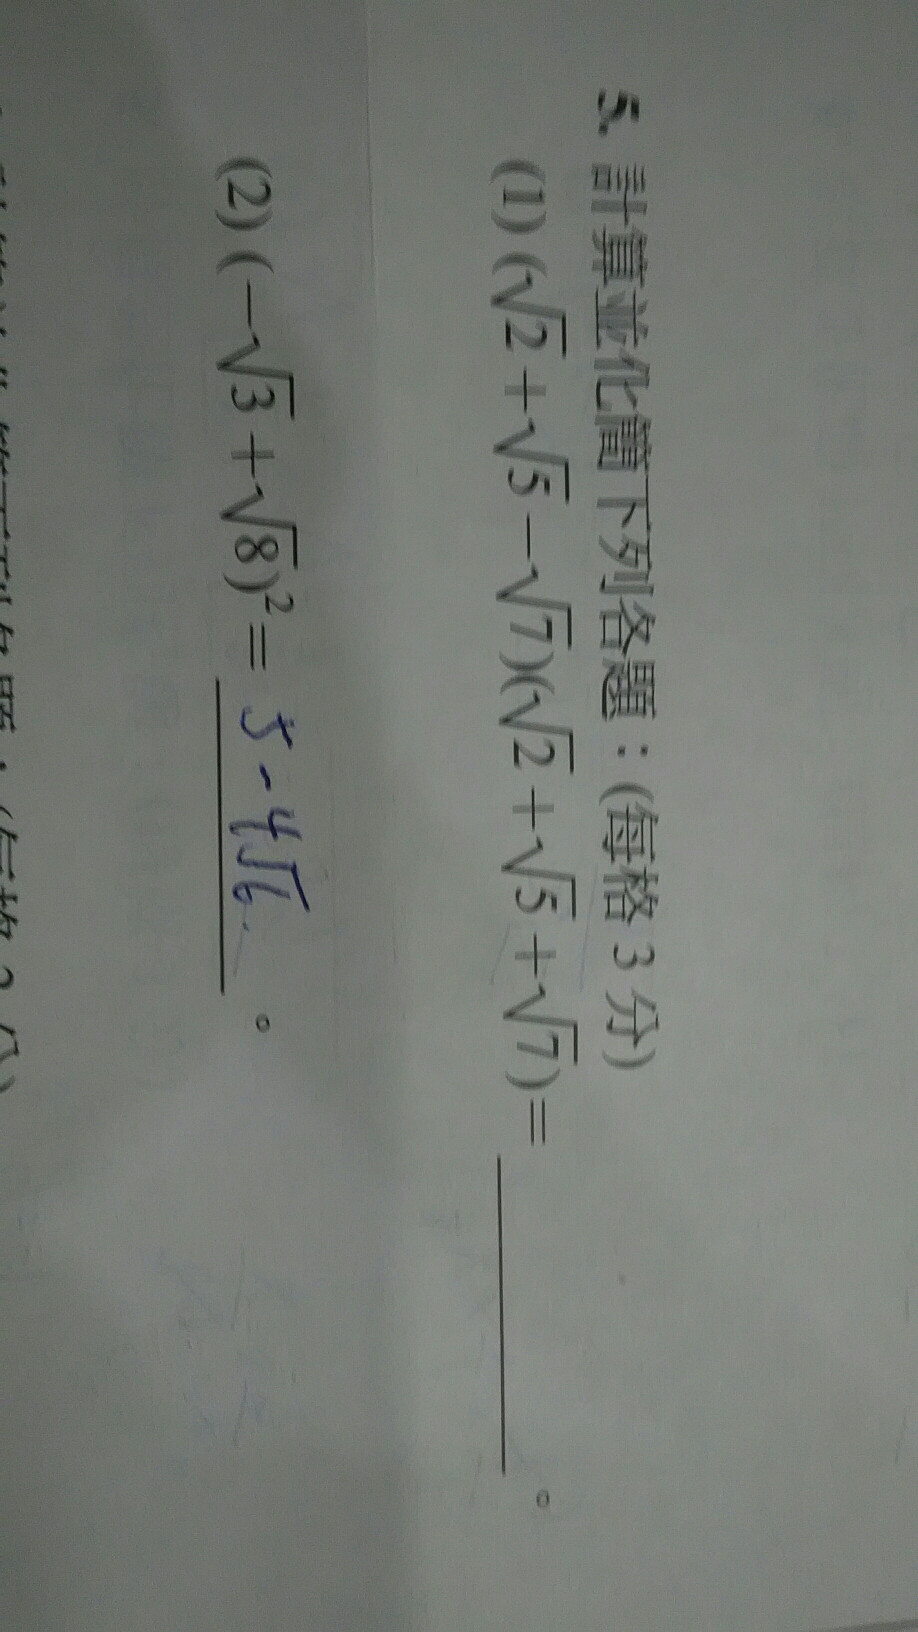 5. 計算並化簡下列各題：(每格 3 分)
(1) (√2+√5−√7)(√2+√5+√7)=＿＿＿＿＿＿。
(2) (−√3+√8)²= 5-4√6. 。